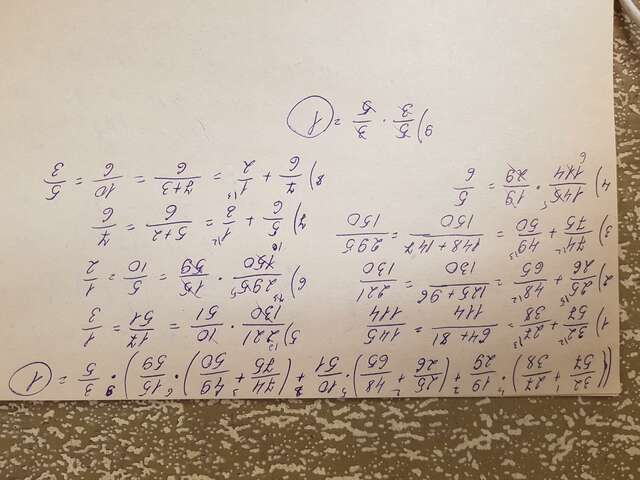 ((32/57 + 27/38) · 19/29 + (25/26 + 48/65) · 10/51 + (74/75 + 49/50) · 15/59) · 3/5 = 1
1) 32/57 + 27/38 = (64+81)/114 = 145/114
2) 25/26 + 48/65 = (125+96)/130 = 221/130
3) 74/75 + 49/50 = (148+147)/150 = 295/150
4) 145/114 · 19/29 = 5/6
5) 221/130 · 10/51 = 17/51 = 1/3
6) 295/150 · 15/59 = 5/10 = 1/2
7) 5/6 + 1/3 = (5+2)/6 = 7/6
8) 7/6 + 1/2 = (7+3)/6 = 10/6 = 5/3
9) 5/3 · 3/5 = 1